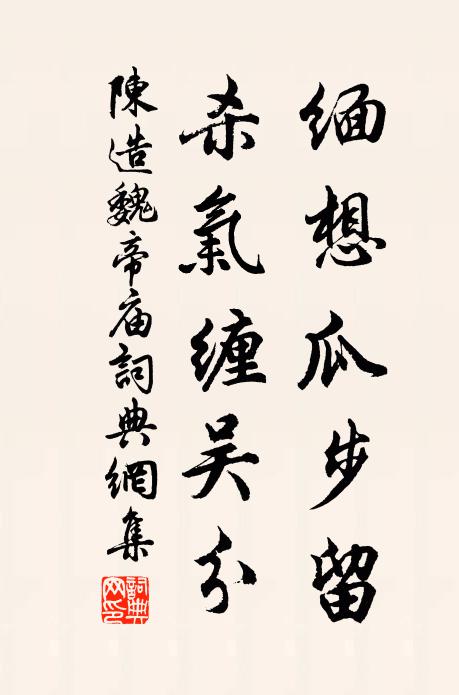 缅想瓜步留
杀氣缠吴分
陳造魏帝庙詞典網集
詞典网印